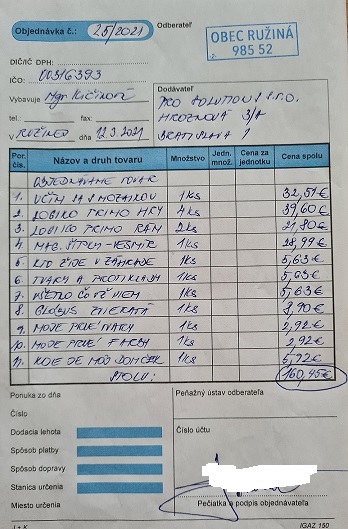 Objednávka č.: 25/2021
Odberateľ
OBEC RUŽINÁ
985 52
DIČ/IČ DPH:
IČO: 00316393
Vybavuje Mgr.
tel.: fax:
V dňa 12.3.2021
Dodávateľ
PRO SOLUTIONS S.R.O.
HROZNOVÁ 3/A
BRATISLAVA 1
Por. čís. Názov a druh tovaru Množstvo Jedn. množ. Cena za jednotku Cena spolu
OBJEDNÁVAME TOVAR
1. UČÍM SA S 1ks 32,51€
2. LOGICO PRIMO HRY 4ks 39,60€
3. LOGICO PRIMO RÁM 2ks 21,80€
4. MAG. - VESMÍR 1ks 28,99€
5. KTO ŽIJE V ZÁHRADE 1ks 5,63€
6. TVARY A PROTIKLADY 1ks 5,63€
7. VŠETKO ČO VIEM 1ks 5,63€
8. GLÓBUS ZVIERATÁ 1ks 3,90€
9. MOJE PRVÉ TVARY 1ks 2,92€
10. MOJE PRVÉ FARBY 1ks 2,92€
11. KDE JE MÔJ DOMČEK 1ks
SPOLU: 160,45€
Ponuka zo dňa
Číslo
Dodacia lehota
Spôsob platby
Spôsob dopravy
Stanica určenia
Miesto určenia
Peňažný ústav odberateľa
Číslo účtu
Pečiatka a podpis objednávateľa
J + K
IGAZ 150